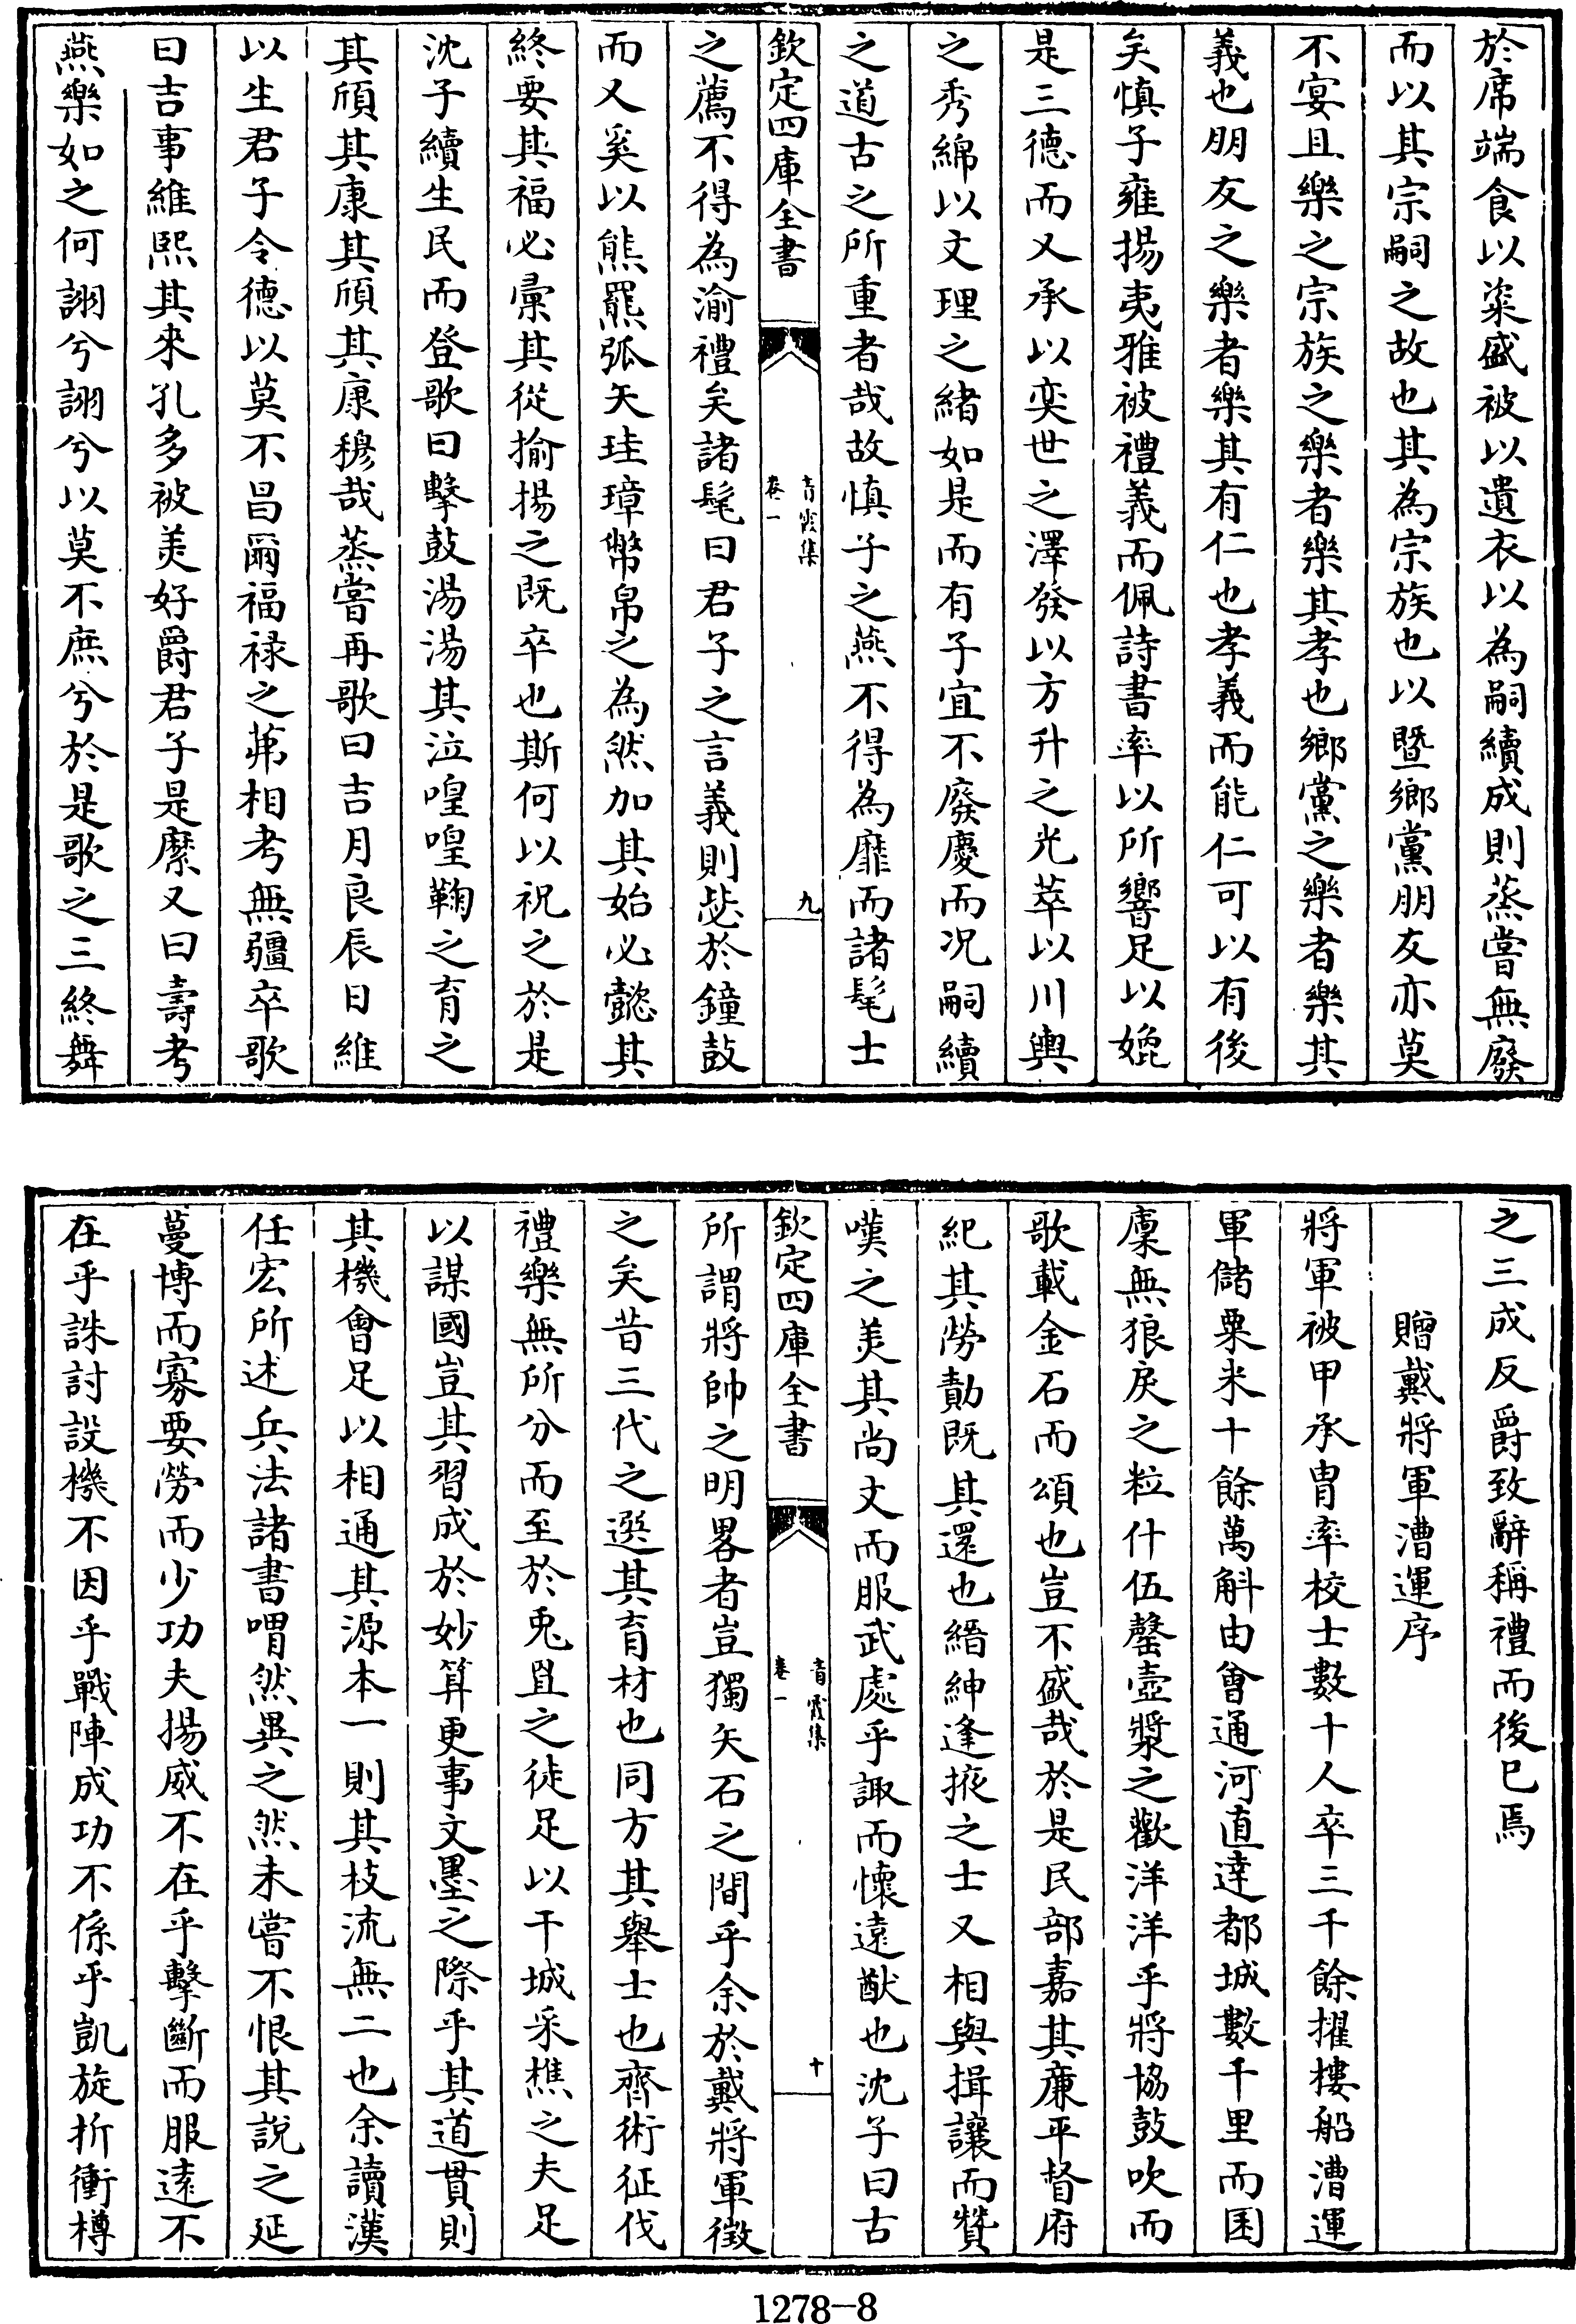 於席端食以粢盛被以遺衣以為嗣續成則蒸嘗無廢
而以其宗嗣之故也其為宗族也以暨鄉黨朋友亦莫
不宴且樂之宗族之樂者樂其孝也鄉黨之樂者樂其
義也朋友之樂者樂其有仁也孝義而能仁可以有後
矣慎子雍揚夷雅被禮義而佩詩書率以所響足以媲
是三德而又承以奕世之澤發以方升之光萃以川輿
之秀綿以文理之緒如是而有子宜不廢慶而况嗣續
之道古之所重者哉故慎子之燕不得為靡而諸髦士
欽定四庫全書
青霞集
卷一
九
之薦不得為渝禮矣諸髦曰君子之言義則毖於鐘鼓
而又奚以熊羆弧矢珪璋幣帛之為然加其始必懿其
終要其福必彙其從揄揚之既卒也斯何以祝之於是
沈子續生民而登歌曰擊鼓湯湯其泣喤喤鞠之育之
其頎其康其頎其康穆哉蒸嘗再歌曰吉月良辰日維
以生君子令德以莫不昌爾福禄之茀相考無疆卒歌
曰吉事維熙其來孔多被羙好爵君子是縻又曰壽考
燕樂如之何詡兮詡兮以莫不庶兮於是歌之三終舞
之三成反爵致辭稱禮而後已焉
贈戴將軍漕運序
將軍被甲承胄率校士數十人卒三千餘擢樓船漕運
軍儲粟米十餘萬斛由會通河直達都城數千里而囷
廩無狼戾之粒什伍罄壺漿之歡洋洋乎將協鼓吹而
歌載金石而頌也豈不盛哉於是民部嘉其廉平督府
紀其勞勣既其還也縉紳逢掖之士又相與揖讓而贊
嘆之羙其尚文而服武處乎諏而懷遠猷也沈子曰古
欽定四庫全書
青霞集
卷一
十
所謂將帥之明畧者豈獨矢石之間乎余於戴將軍徵
之矣昔三代之選其育材也同方其舉士也齊術征伐
禮樂無所分而至於兎罝之徒足以干城采樵之夫足
以謀國豈其習成於妙算更事文墨之際乎其道貫則
其機會足以相通其源本一則其枝流無二也余讀漢
任宏所述兵法諸書喟然異之然未嘗不恨其說之延
蔓博而寡要勞而少功夫揚威不在乎擊斷而服逺不
在乎誅討設機不因乎戰陣成功不係乎凱旋折衝樽
1278—8